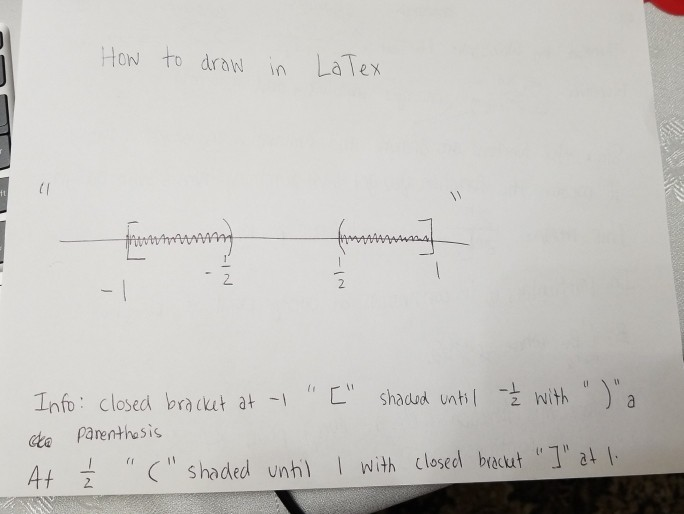 How to draw in LaTex
"
"
[ ) ( ]
-1 -1/2 1/2 1
Info: closed bracket at -1 "[" shaded until -1/2 with ")" a
parenthesis
At 1/2 "(" shaded until 1 with closed bracket "]" at 1.